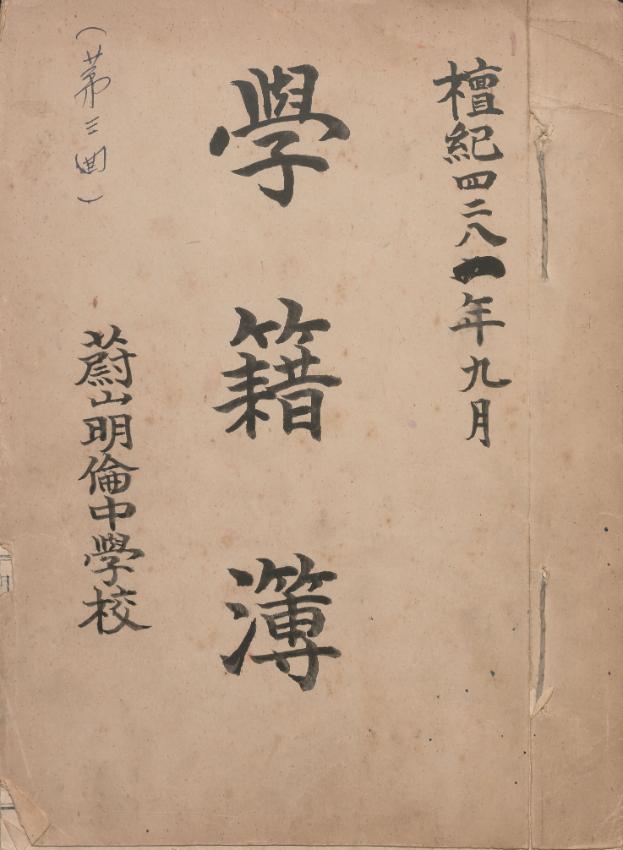 檀紀四二八一年九月
學籍簿
(第三回)
蔚山明倫中學校